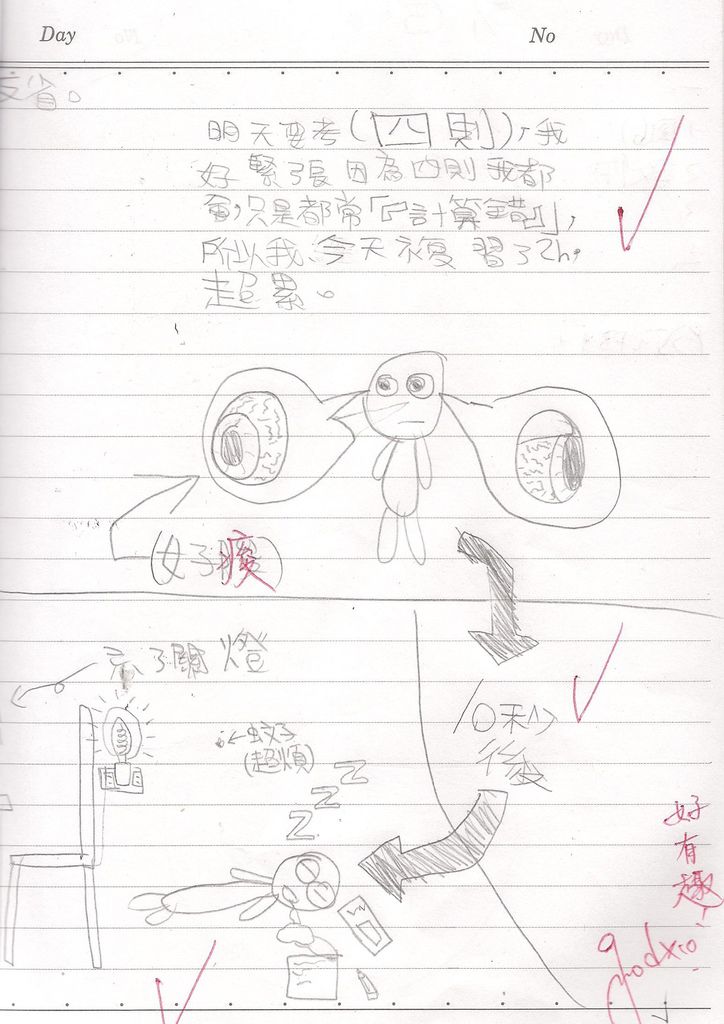 Day
No
反省。
明天要考(「四則」),我
好緊張因為四則我都
會,只是都常「計算錯」,
所以我今天複習了2h,
超累。
(好痠)
忘了關燈
蚊子
(超煩)
10秒
後
Z
Z
Z
好有趣!